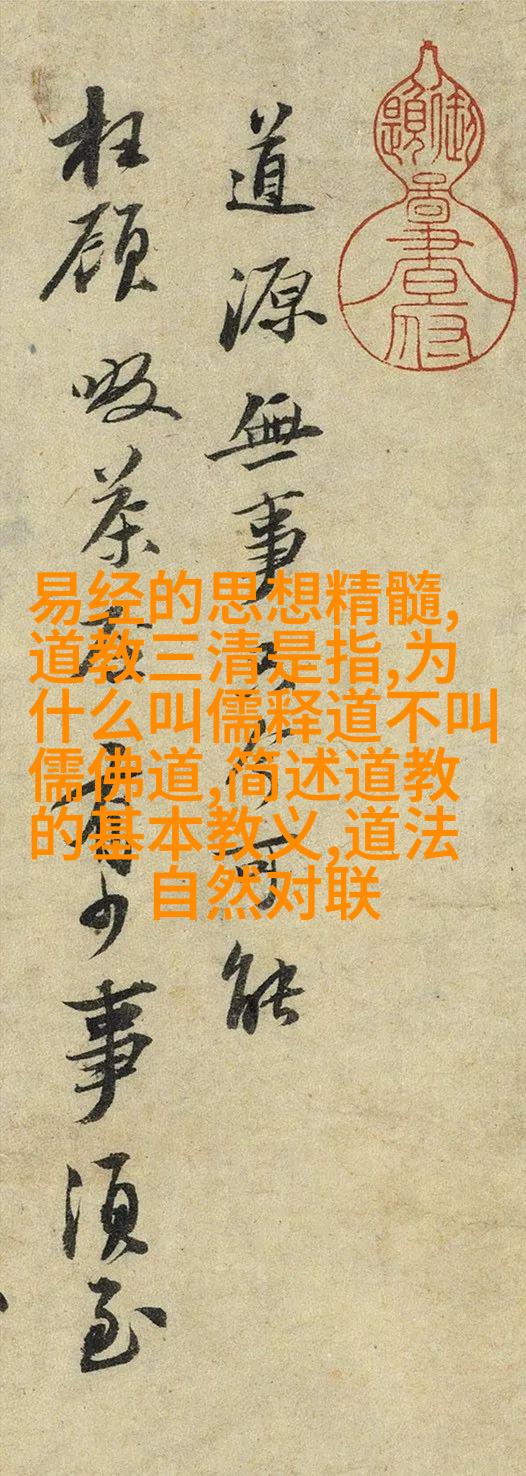 道源無事只今可能
枉顧啜茶否有少事須至
易经的思想精髓,
道教三清是指,为
什么叫儒释道不叫
儒佛道,简述道教
的基本教义,道法
自然对联